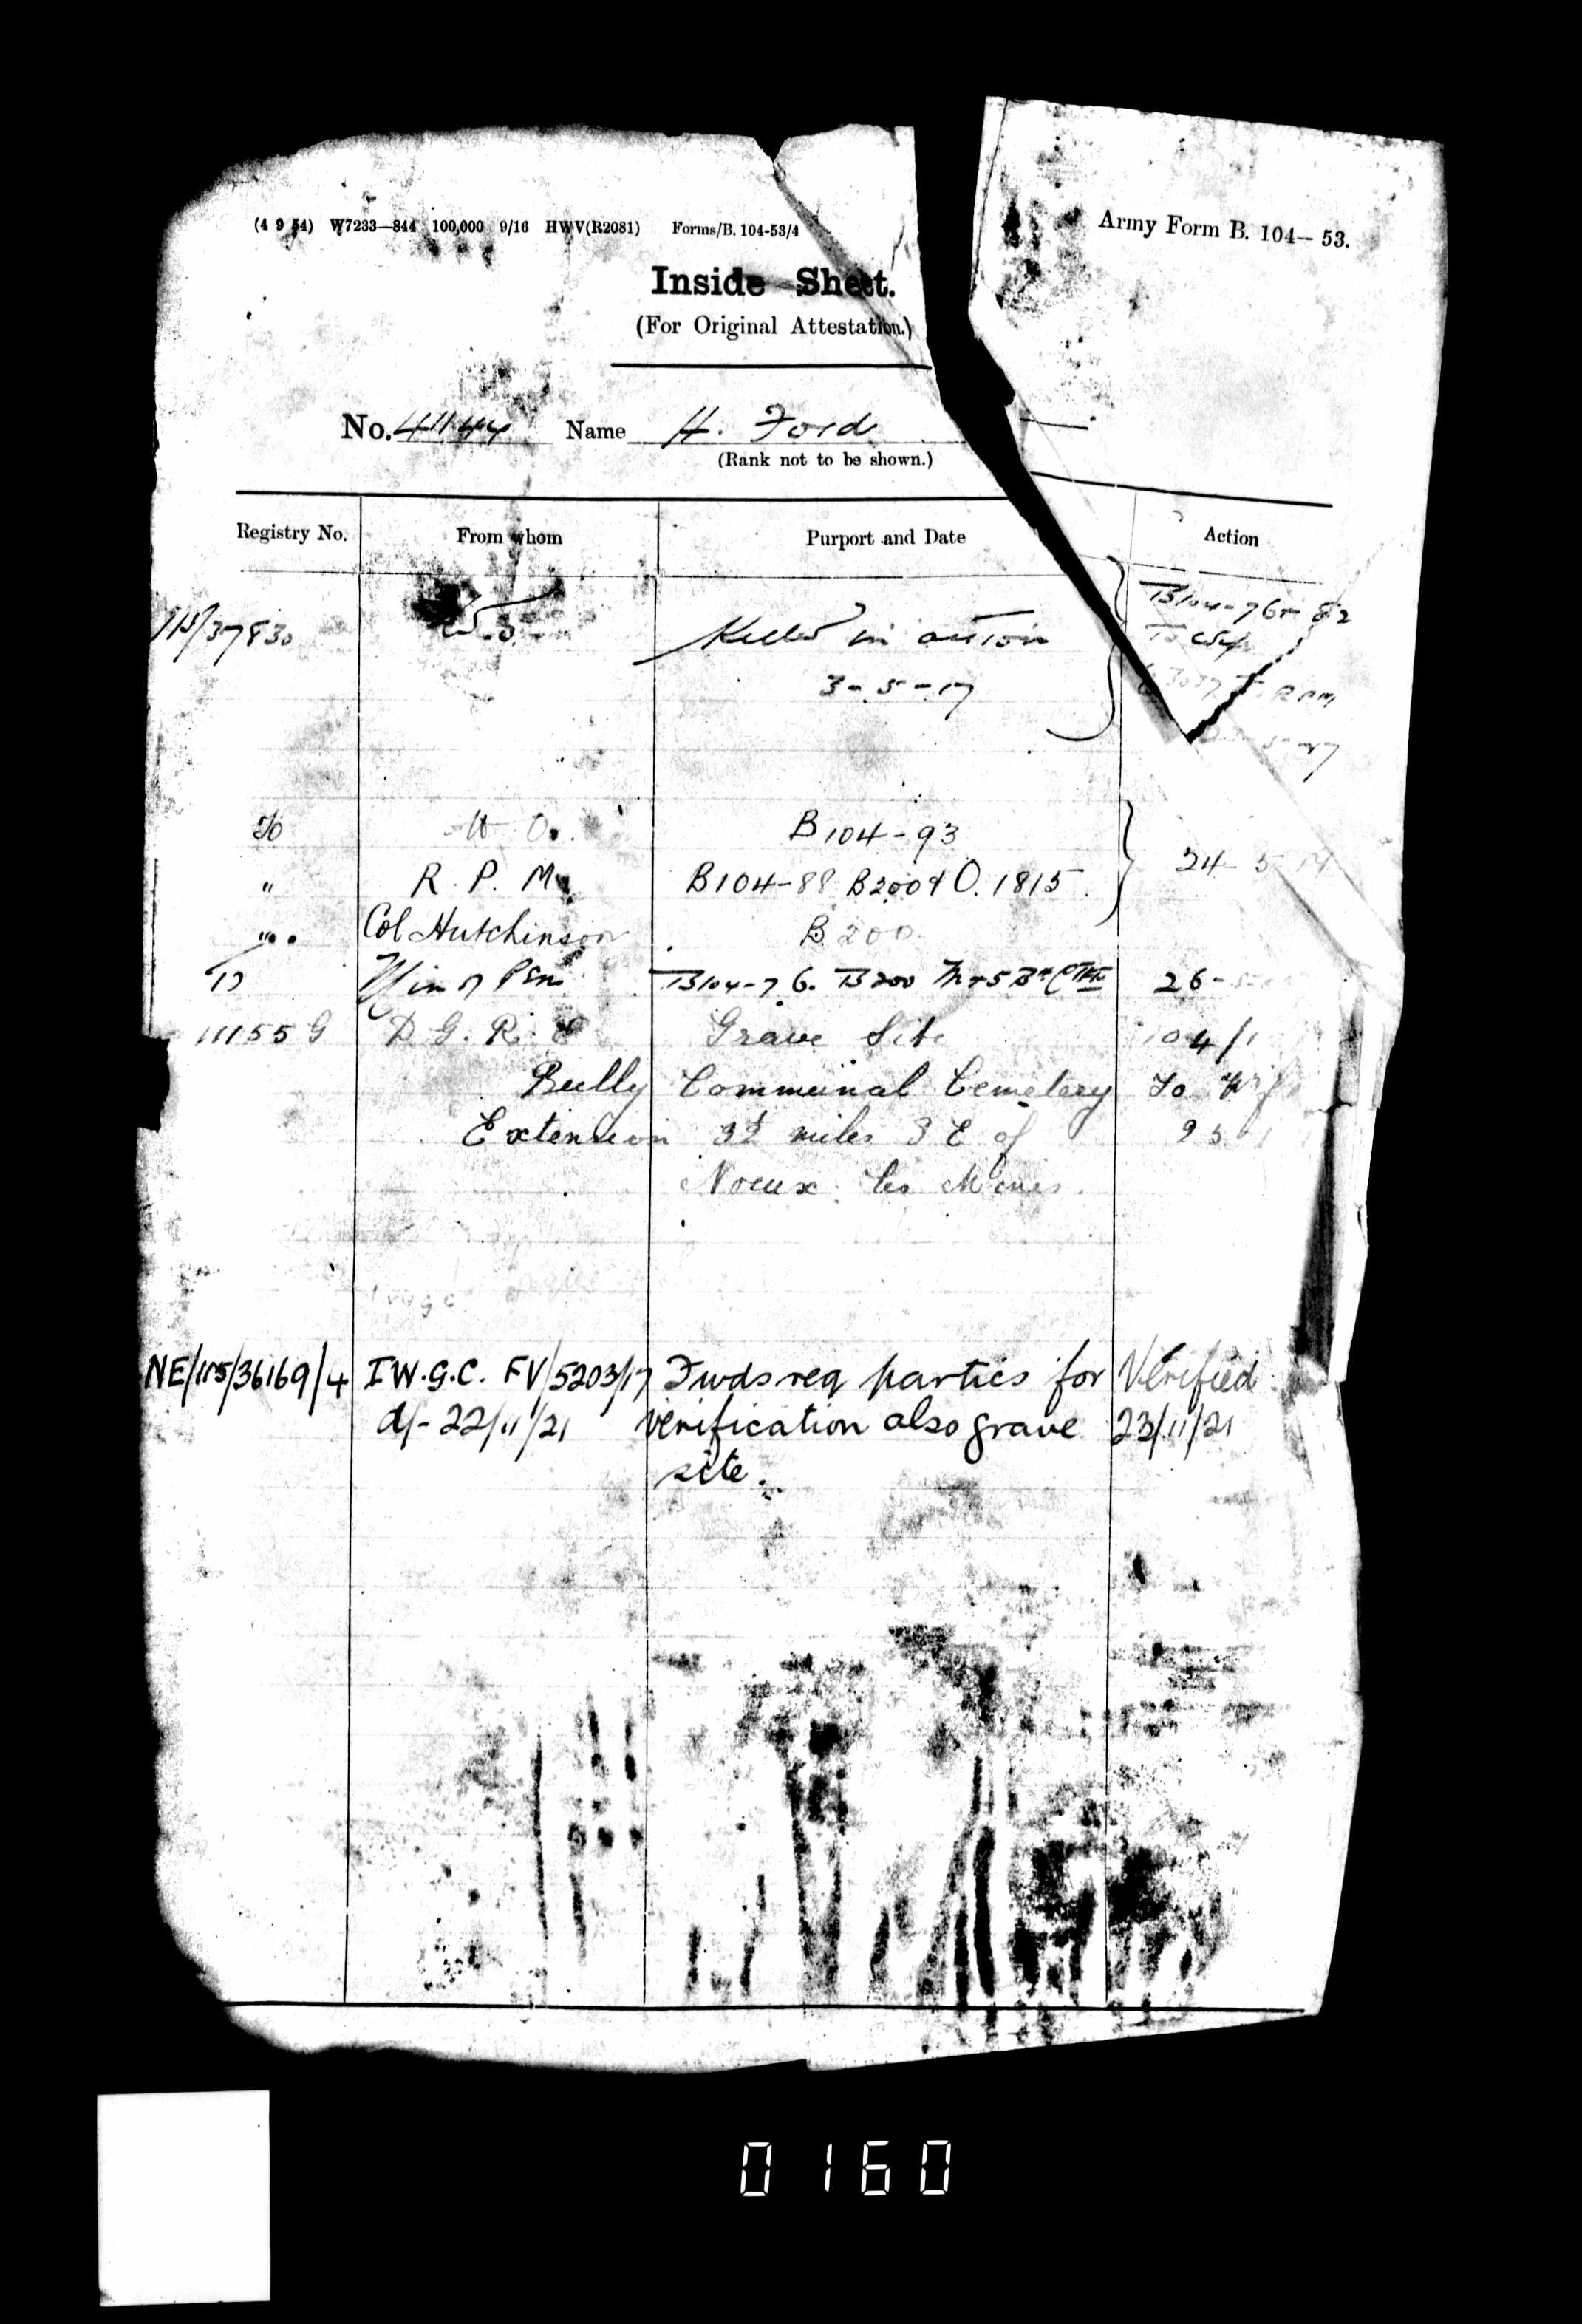 (4 9 54) W7233—844 100,000 9/16 HWV(R2081) Forms/B. 104-53/4
Army Form B. 104—53.
Inside Sheet.
(For Original Attestation.)
No. 41144 Name H. Ford
(Rank not to be shown.)
Registry No. From whom Purport and Date Action
/37830 Killed in action B104-76 82
3-5-17
To W O. B104-93
" R. P. M. B104-88 B200 & O. 1815. 24-5-17
" Col Hutchinson B 200
To Min of Pen B104-76. B200 26-5-
11155 G D. G. R. E Grave Site 104/1
Bully Communal Cemetery To Wif
Extension 3½ miles S E of 9 5
Noeux les Mines.
NE/115/36169/4 I.W.G.C. FV/5203/17 Fwds req parties for Verified
d/- 22/11/21 verification also grave 23/11/21
site.
0160